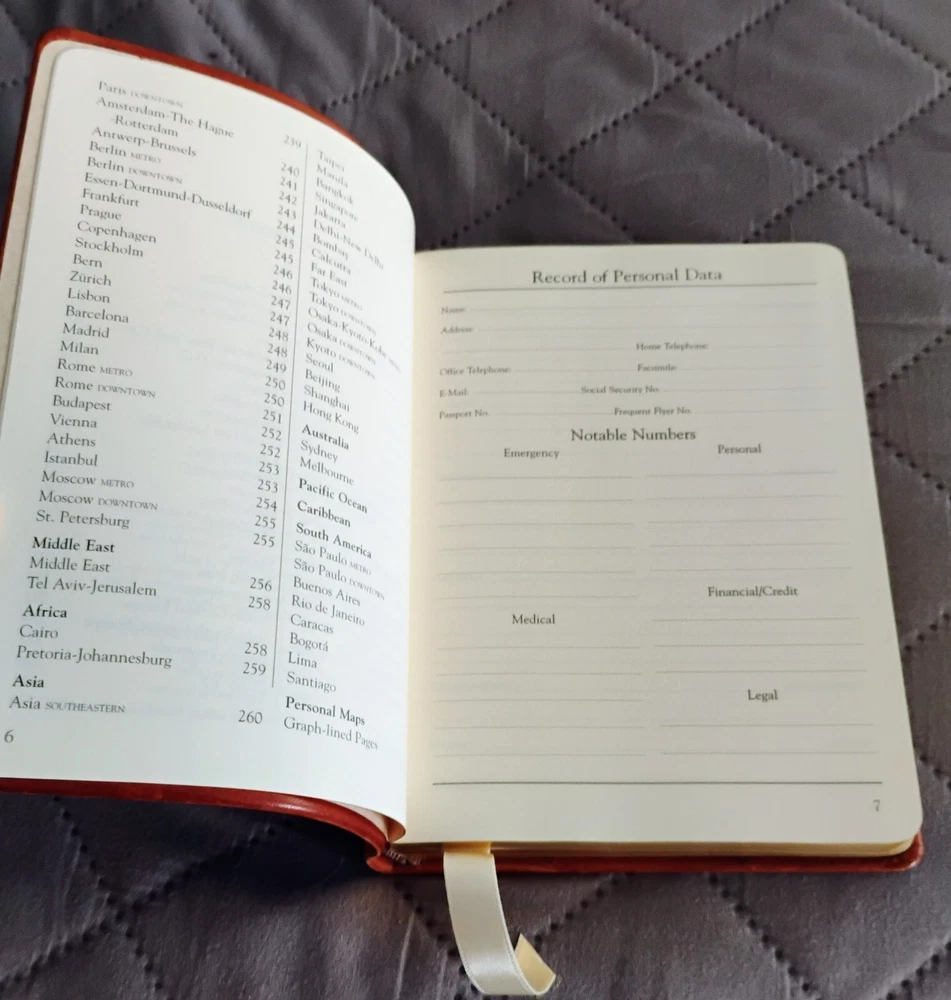 Paris DOWNTOWN 239
Amsterdam-The Hague
-Rotterdam 240
Antwerp-Brussels 241
Berlin METRO 242
Berlin DOWNTOWN 243
Essen-Dortmund-Dusseldorf 244
Frankfurt 245
Prague 245
Copenhagen 246
Stockholm 246
Bern 247
Zürich 247
Lisbon 248
Barcelona 248
Madrid 249
Milan 250
Rome METRO 250
Rome DOWNTOWN 251
Budapest 252
Vienna 252
Athens 253
Istanbul 253
Moscow METRO 254
Moscow DOWNTOWN 255
St. Petersburg 255
Middle East
Middle East 256
Tel Aviv-Jerusalem 258
Africa
Cairo 258
Pretoria-Johannesburg 259
Asia
Asia SOUTHEASTERN 260
6
Taipei
Manila
Bangkok
Singapore
Jakarta
Delhi-New Delhi
Bombay
Calcutta
Far East
Tokyo METRO
Tokyo DOWNTOWN
Osaka-Kyoto-Kobe
Osaka DOWNTOWN
Kyoto DOWNTOWN
Seoul
Beijing
Shanghai
Hong Kong
Australia
Sydney
Melbourne
Pacific Ocean
Caribbean
South America
São Paulo METRO
São Paulo DOWNTOWN
Buenos Aires
Rio de Janeiro
Caracas
Bogotá
Lima
Santiago
Personal Maps
Graph-lined Pages
Record of Personal Data
Name:
Address:
Home Telephone:
Office Telephone: Facsimile:
E-Mail: Social Security No.
Passport No. Frequent Flyer No.
Notable Numbers
Emergency
Personal
Medical
Financial/Credit
Legal
7